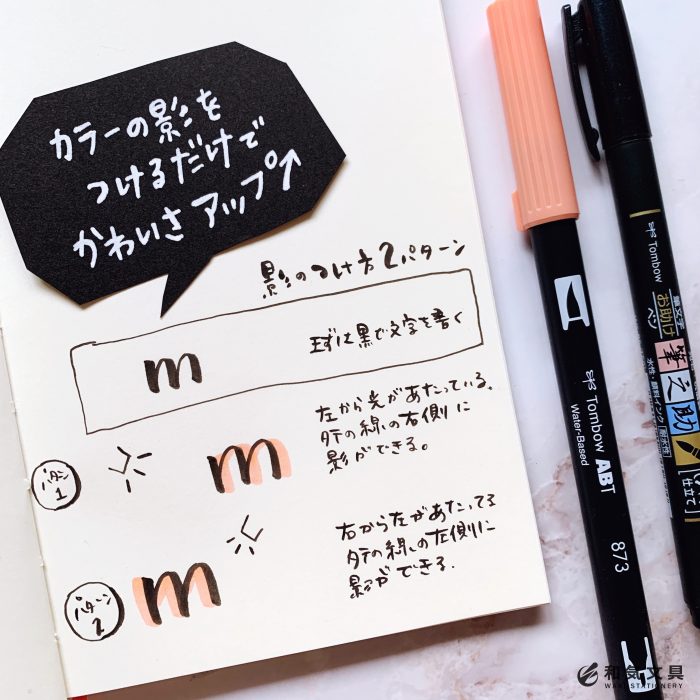 カラーの影を
つけるだけで
かわいさアップ↑
影のつけ方2パターン
m
まずは黒で文字を書く
パタン
1
m
左から光があたっている。
タテの線の右側に
影ができる。
パターン
2
m
右から左があたってる
タテの線の左側に
影ができる.
Tombow ABT
Water-Based
873
Tombow
筆文字
お助け
ペン
筆之助
水性・顔料インク
仕立て
和気文具
WAKI STATIONERY